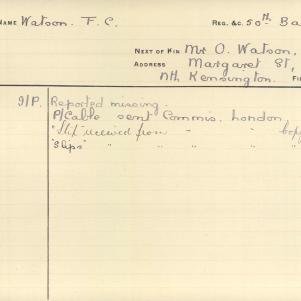 NAME Watson. F. C. REG. &C. 50th Ba
NEXT OF KIN Mr O. Watson,
ADDRESS Margaret St,
Nth Kensington. FI
I/P. Reported missing.
P/Cable sent Commis. London,
"Slip" received from " "
"Slips" " " " "